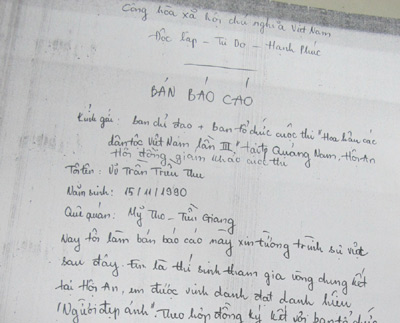 Cộng hòa xã hội chủ nghĩa Việt Nam
Độc lập - Tự Do - Hạnh Phúc
BẢN BÁO CÁO
Kính gửi: ban chỉ đạo + ban tổ chức cuộc thi "Hoa hậu các
dân tộc Việt Nam lần III" tại Quảng Nam, Hội An
Hội đồng giám khảo cuộc thi
Tôi tên: Võ Trần Triều Thu
Năm sinh: 15/11/1990
Quê quán: Mỹ Tho - Tiền Giang
Nay tôi làm bản báo cáo này xin tường trình sự việc
sau đây. Em là thí sinh tham gia vòng chung kết
tại Hội An, em được vinh danh đạt danh hiệu
"Người đẹp ảnh". Theo hợp đồng ký kết với ban tổ chức